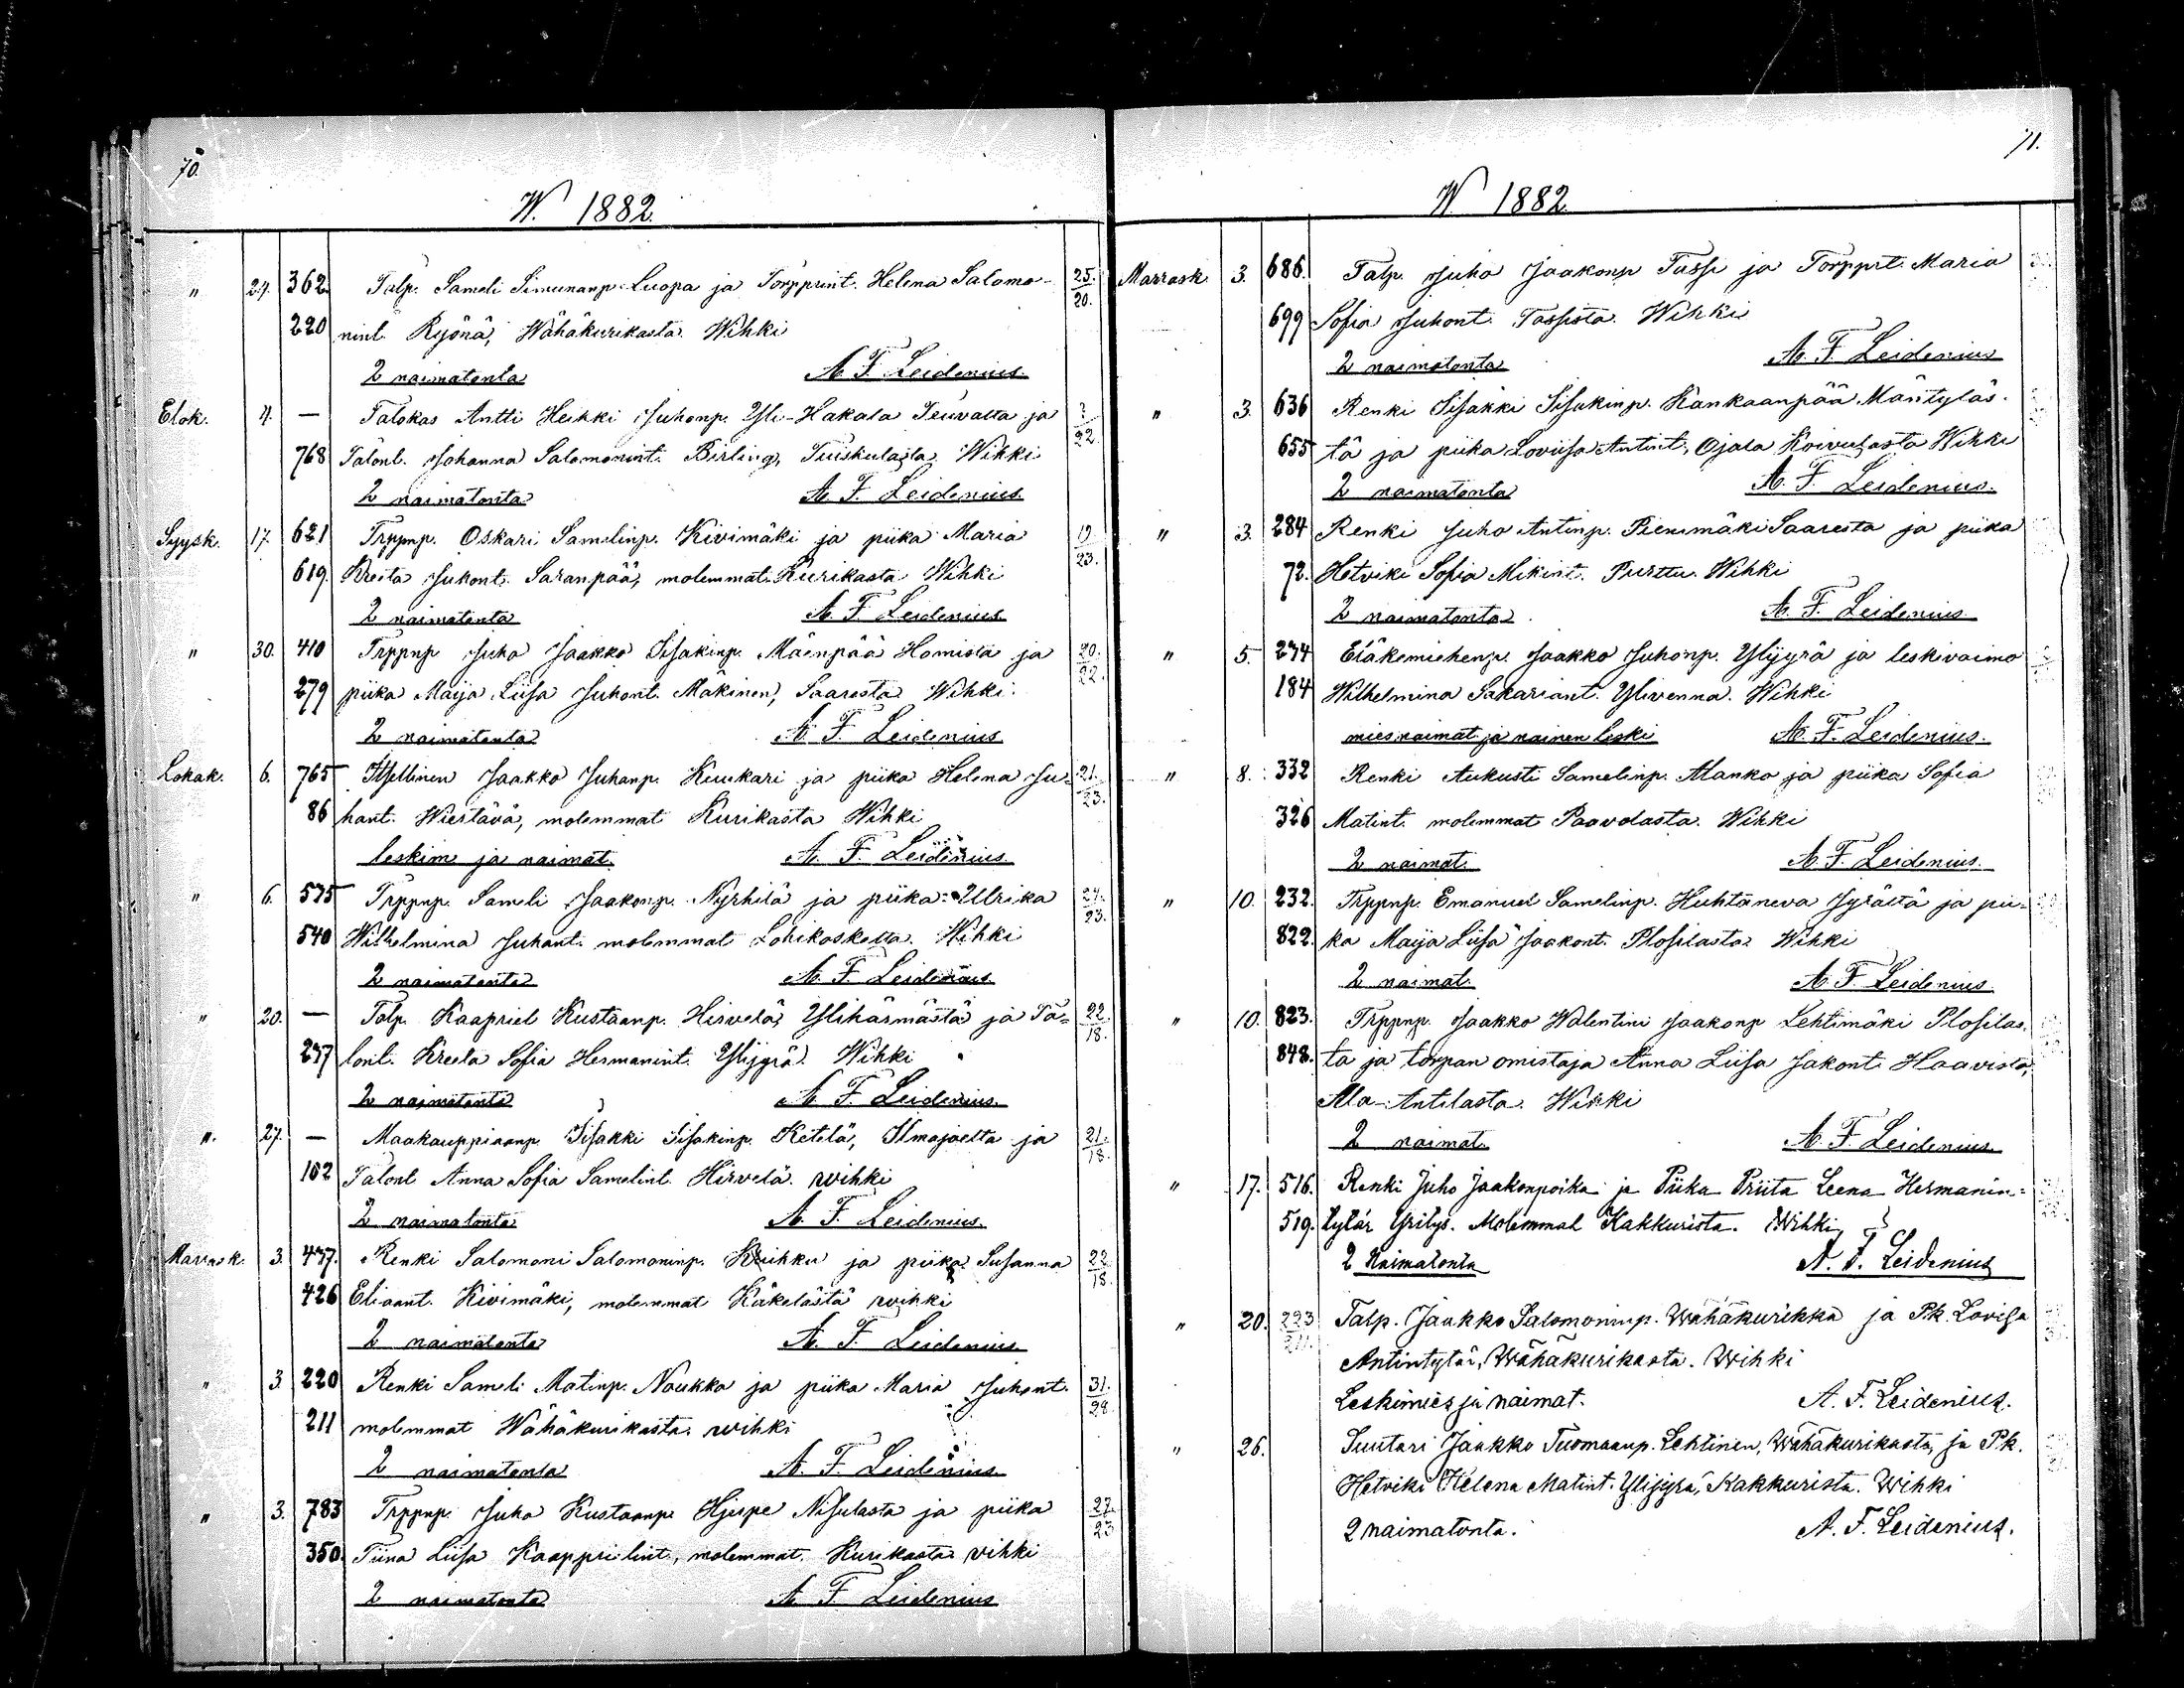 70.
W. 1882.
" 27. 362. Talp. Sameli Simunanp. Luopa ja Torpprint. Helena Salomo- 25./20.
220 nint. Ryönä, Wähäkurikasta. Wihki
2 naimatonta A. F. Leidenius.
Elok. 4. — Talokas Antti Heikki Juhonp. Yli-Hakala Teuvalta ja ?/22
768 Talont. Johanna Salomonint. Birling, Tuiskulasta. Wihki
2 naimatonta A. F. Leidenius
Syysk. 17. 621 Trppnp. Oskari Samelinp. Kivimäki ja piika Maria 19/23.
619. Kreeta Juhont. Saranpää, molemmat Kurikasta Wihki
2 naimatonta A. F. Leidenius
" 30. 410 Trppnp Juho Jaakko Iisakinp. Mäenpää Homista ja 20./22.
279 piika Maija Liisa Juhont. Mäkinen, Saaresta Wihki.
2 naimatonta A. F. Leidenius
Lokak. 6. 765 Itsellinen Jaakko Juhanp. Kuukari ja piika Helena Ju- 21./23.
86 hant. Wiertävä, molemmat Kurikasta Wihki
leskim ja naimat. A. F. Leidenius
" 6. 575 Trppnp. Sameli Jaakonp. Nyrhilä ja piika Ulrika 24./23.
540 Wilhelmina Juhant. molemmat Lohikoskelta. Wihki
2 naimatonta A. F. Leidenius
" 20. — Talp. Kaapriel Kustaanp. Hirvelä, Ylihärmästä ja Ta- 22/18.
247 lont. Kreeta Sofia Hermanint. Ylijyrä. Wihki
2 naimatonta A. F. Leidenius.
". 27. — Maakauppiaanp. Iisakki Iisakinp. Ketelä, Ilmajoelta ja 21./18.
102 Talont Anna Sofia Samelint. Hirvelä. wihki
2 naimatonta A. F. Leidenius
Marrask. 3. 447. Renki Salomoni Salomoninp. Kuikku ja piika Susanna 22/18.
426 Eliaant. Kivimäki, molemmat Käkelästä wihki
2 naimatonta A. F. Leidenius
" 3. 220 Renki Sameli Matinp. Naukka ja piika Maria Juhont. 31./28.
211 molemmat Wähäkurikasta. wihki
2 naimatonta A. F. Leidenius
" 3. 783 Trppnp. Juho Kustaanp. Hjerpe Nisulasta ja piika 27./23
350. Tiina Liisa Kaapprilint, molemmat. Kurikasta vihki
2 naimatonta A. F. Leidenius
71.
W 1882
Marrask 3. 686. Talp. Juho Jaakonp Tassi ja Torpprt. Maria
699 Sofia Juhont. Tassista. Wihki
2 naimatonta A. F. Leidenius
" 3. 636 Renki Iisakki Iisakinp. Kankaanpää Mäntyläs-
655 tä ja piika Loviisa Antint. Ojala Koivulasta Wihki
2 naimatonta A. F. Leidenius.
" 3. 284 Renki Juho Antinp. Pienimäki Saaresta ja piika
72. Hetviki Sofia Mikint. Purttu. Wihki
2 naimatonta A. F. Leidenius
" 5. 274 Eläkemiehenp. Jaakko Juhonp. Ylijyrä ja leskivaimo
184 Wilhelmina Sakariant. Ylivenna. Wihki
mies naimat. ja nainen leski A. F. Leidenius.
" 8. 332 Renki Aukusti Samelinp. Alanko ja piika Sofia
326 Matint. molemmat Paavolasta. Wihki
2 naimat. A. F. Leidenius.
" 10. 232. Trppnp. Emanuel Samelinp. Huhtaneva Jyrältä ja pii-
822. ka Maija Liisa Jaakont. Plosilasta Wihki
2 naimat. A. F. Leidenius.
" 10. 823. Trppnp. Jaakko Walentini Jaakonp Lehtimäki Plosilas-
848. ta ja torpan omistaja Anna Liisa Jakont. Haavisto,
Ala-Antilasta. Wihki
2 naimat. A. F. Leidenius
" 17. 516. Renki Juho Jaakonpoika ja Piika Priita Leena Hermanin-
519. tytär Yritys. Molemmat Kakkurista. Wihki
2 Naimatonta A. F. Leidenius
" 20. 223/211. Talp. Jaakko Salomoninp. Wähäkurikka ja Pk. Lovisa
Antintytär, Wähäkurikasta. Wihki
Leskimies ja naimat. A. F. Leidenius.
" 26. Suutari Jaakko Tuomaanp. Lehtinen, Wähäkurikasta, ja Pk.
Hetviki Helena Matint. Ylijyrä, Kakkurista. Wihki
2 naimatonta. A. F. Leidenius.